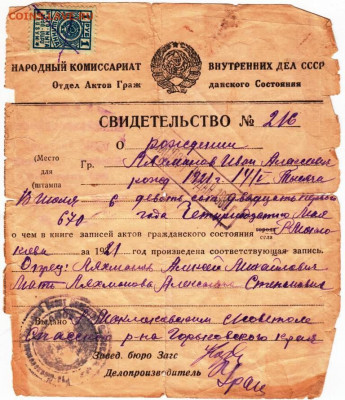 НАРОДНЫЙ КОМИССАРИАТ ВНУТРЕННИХ ДЕЛ СССР
Отдел Актов Гражданского Состояния
СВИДЕТЕЛЬСТВО № 216
О рождении
(Место для штампа
Гр. Ляхманов Иван Алексеевич
рожд 1921 г 14/V Тысяча
девятьсот двадцать первого
года Четырнадцатого Мая
о чем в книге записей актов гражданского состояния города села
за 1921 год произведена соответствующая запись.
Отец: Ляхманов Алексей Михайлович
Мать Ляхманова Александра Степановна
Выдано
Спасского р-на Горьковского края
Завед. бюро Загс
Делопроизводитель